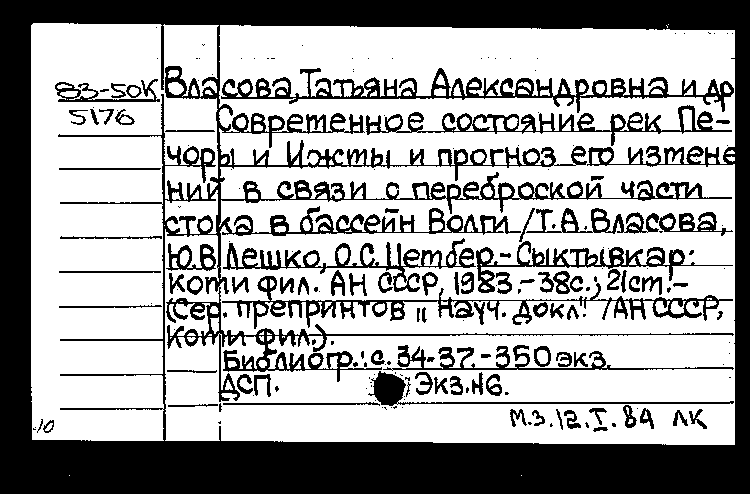 83-50К Власова, Татьяна Александровна и др
5176 Современное состояние рек Пе-
чоры и Ижмы и прогноз его измене
ний в связи с переброской части
стока в бассейн Волги /Т.А.Власова,
Ю.В Лешко, О.С.Цембер.-Сыктывкар:
Коми фил. АН СССР, 1983.-38с.; 21см.-
(Сер. препринтов „Науч. докл." /АН СССР,
Коми фил.).
Библиогр.: с. 34-37.-350экз.
ДСП. Экз.№6.
М.З.12.I.84 ЛК
10